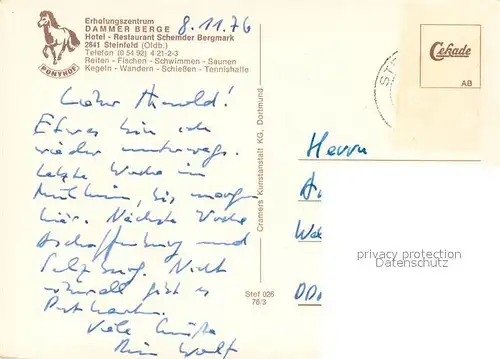 Erholungszentrum
DAMMER BERGE
Hotel - Restaurant Schemder Bergmark
2841 Steinfeld (Oldb.)
Telefon (0 54 92) 4 21-2-3
Reiten - Fischen - Schwimmen - Saunen
Kegeln - Wandern - Schießen - Tennishalle
PONYHOF
8.11.76
Lieber Harold!
Etwas bin ich
wieder unterwegs.
Letzte Woche in
Mülheim, bis morgen
hier. Nächste Woche
Aschaffenburg und
Salzburg. Nicht
überall gibt es
Postkarten.
Viele Grüße
Dein Wolf
Stef 026
76/3
Cramers Kunstanstalt KG, Dortmund
Cekade
AB
ST
Herrn
DD
privacy protection
Datenschutz